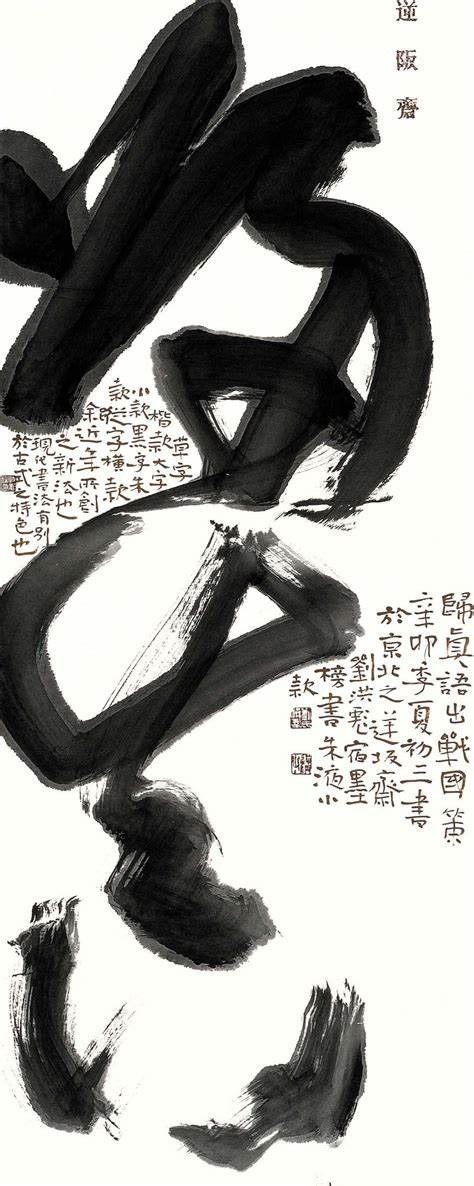 逆阪齋
歸真
歸真語出戰國策
辛卯季夏初三書
於京北之逆坂齋
劉洪彪宿墨
榜書朱液小
款
草字
楷款大字
小款黑字朱
款竪字橫款
余近年所創
之新法也
現代書法有別
於古式之特色也